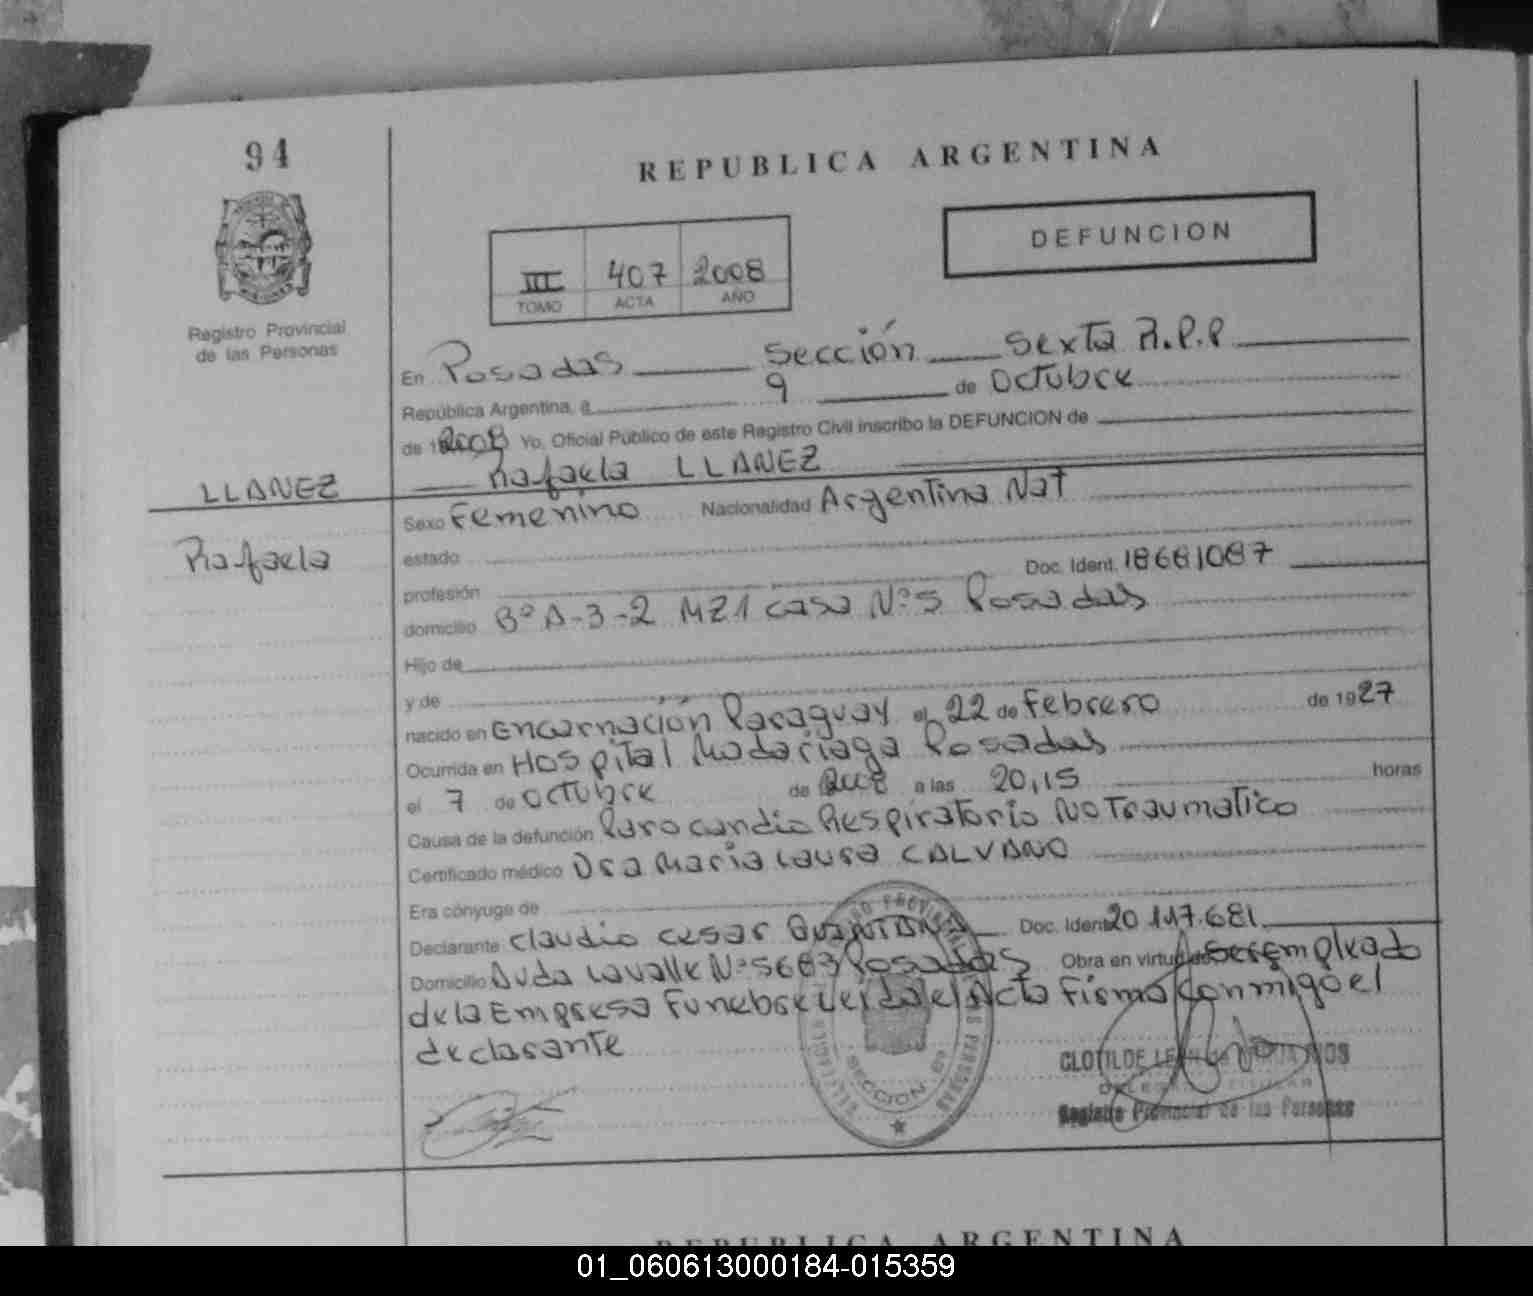 94
REPUBLICA ARGENTINA
DEFUNCION
III 407 2008
TOMO ACTA AÑO
Registro Provincial
de las Personas
En Posadas Sección Sexta R.P.P
República Argentina, a 9 de Octubre
de 2008 Yo, Oficial Público de este Registro Civil inscribo la DEFUNCION de
Rafaela LLANEZ
LLANEZ
Rafaela
Sexo Femenino Nacionalidad Argentina Nat
estado
profesión Doc. Ident. 18681087
domicilio Bº A-3-2 MZ1 casa Nº5 Posadas
Hijo de
y de
nacido en Encarnación Paraguay el 22 de Febrero de 1927
Ocurrida en Hospital Madariaga Posadas
el 7 de Octubre de 2008 a las 20,15 horas
Causa de la defunción Paro cardio Respiratorio No Traumatico
Certificado médico Dra Maria Laura CALVANO
Era cónyuge de
Declarante Claudio Cesar QUINTANA Doc. Ident 20.117.681
Domicilio Avda Lavalle Nº5683 Posadas Obra en virtud de ser empleado
de la Empresa Funebre Leída el Acta Firma conmigo el
declarante
REGISTRO PROVINCIAL DE LAS PERSONAS
SECCION 6ª
CLOTILDE
Registro Provincial de las Personas
REPUBLICA ARGENTINA
01_060613000184-015359